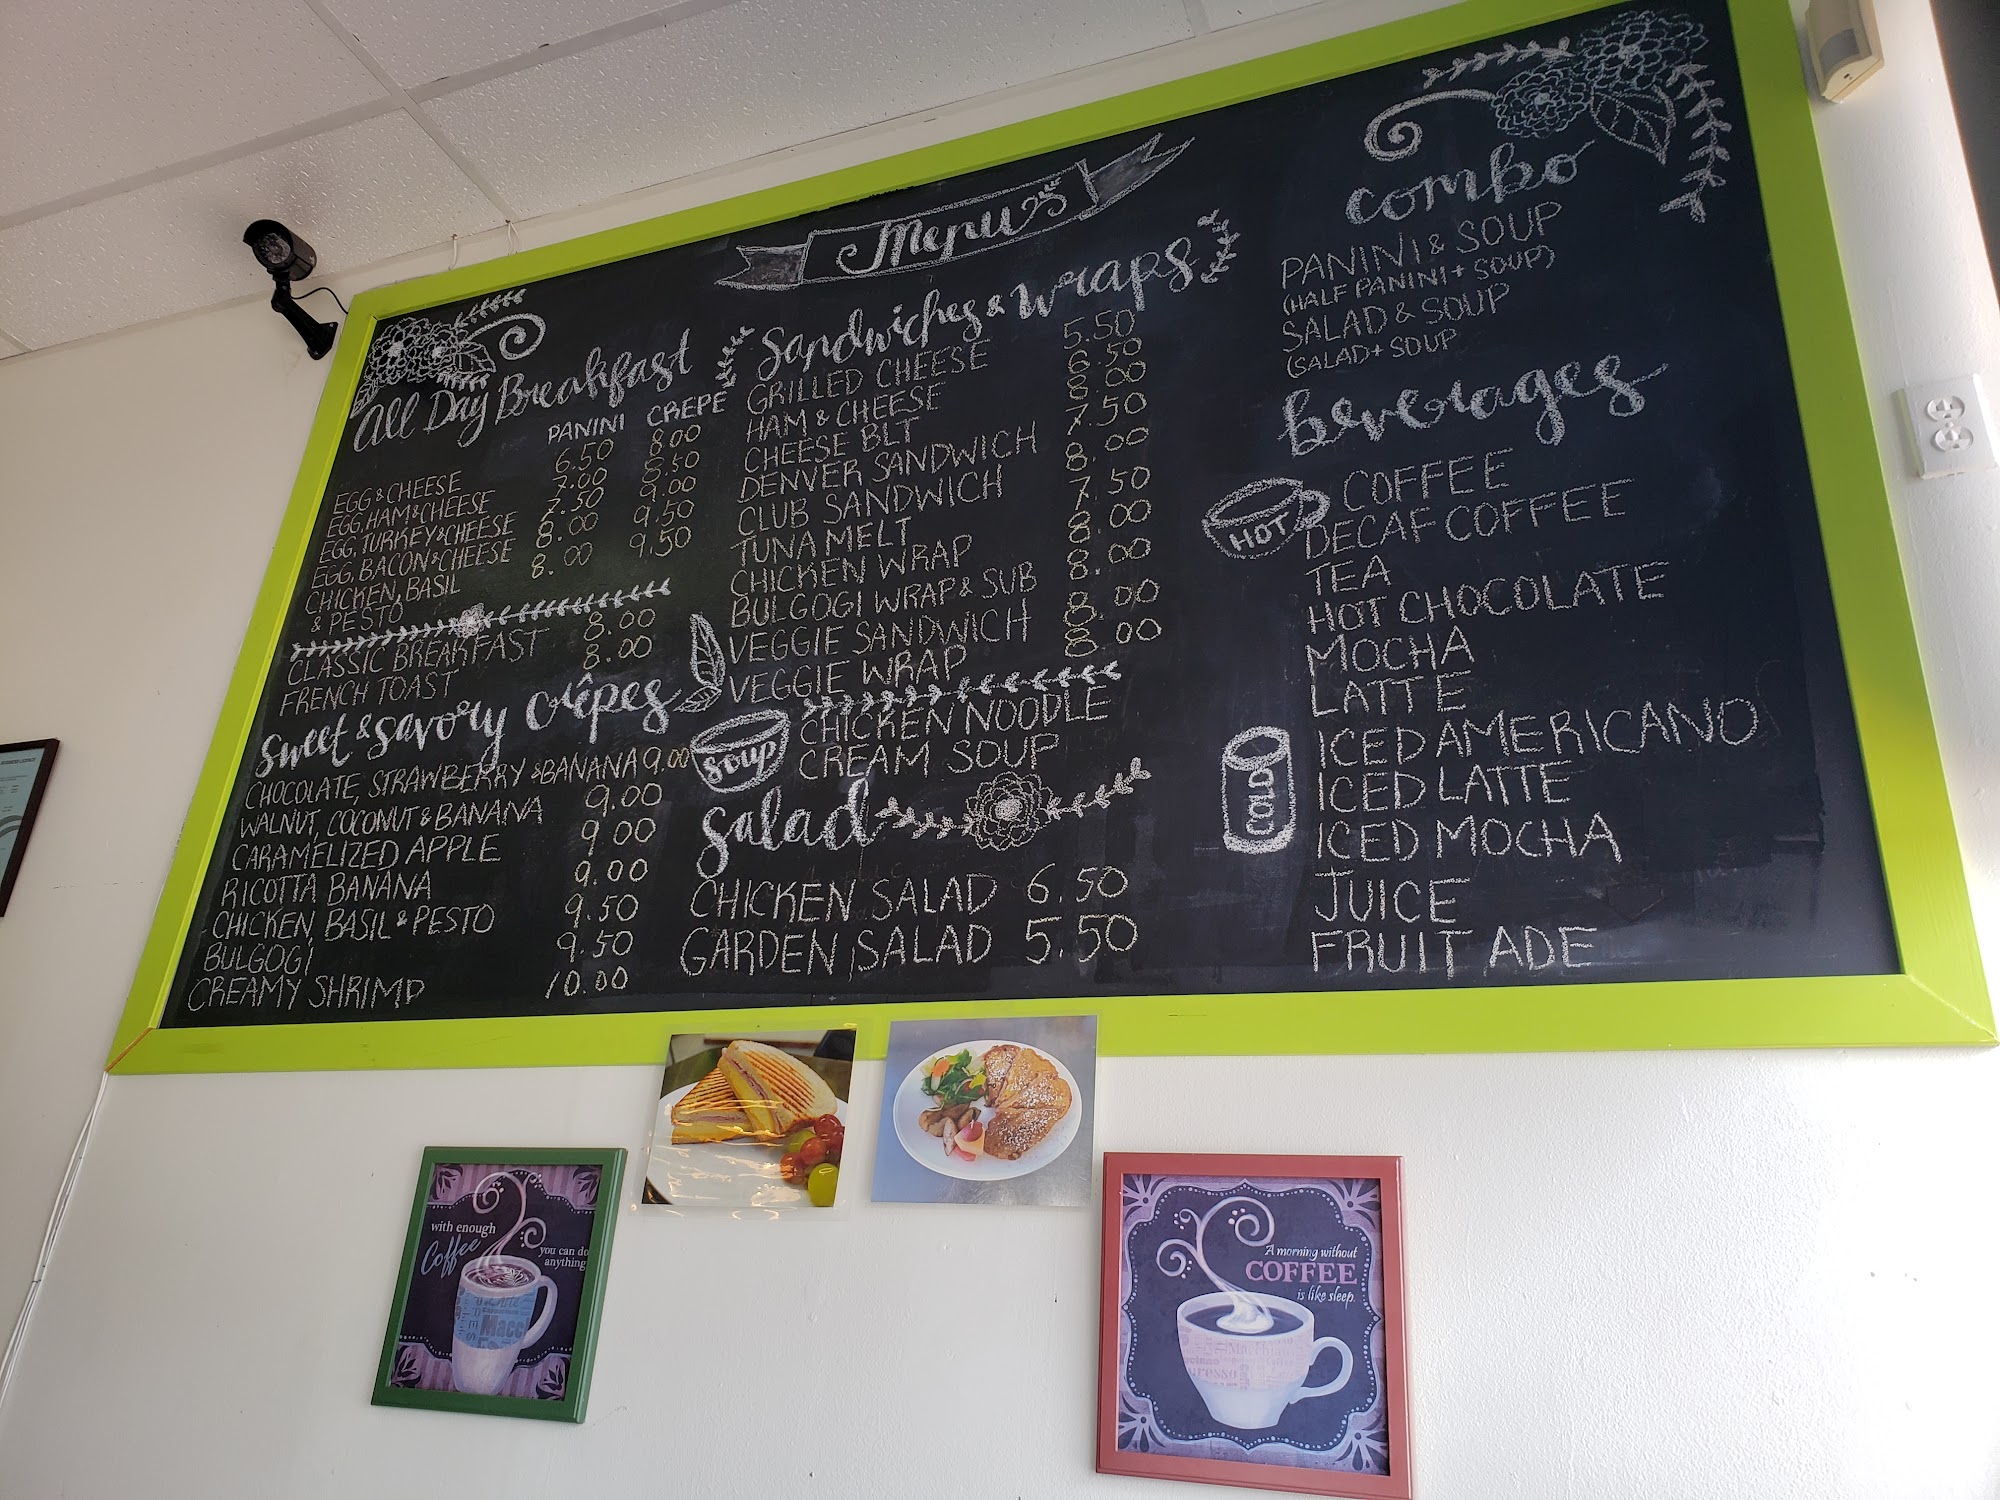 Menu
All Day Breakfast
PANINI CREPE
EGG & CHEESE 6.50 8.00
EGG, HAM & CHEESE 7.00 8.50
EGG, TURKEY & CHEESE 7.50 9.00
EGG, BACON & CHEESE 8.00 9.50
CHICKEN, BASIL 8.00 9.50
& PESTO
CLASSIC BREAKFAST 8.00
FRENCH TOAST 8.00
Sweet & Savory Crêpes
CHOCOLATE, STRAWBERRY & BANANA 9.00
WALNUT, COCONUT & BANANA 9.00
CARAMELIZED APPLE 9.00
RICOTTA BANANA 9.00
CHICKEN, BASIL & PESTO 9.50
BULGOGI 9.50
CREAMY SHRIMP 10.00
Sandwiches & Wraps
GRILLED CHEESE 5.50
HAM & CHEESE 6.50
CHEESE BLT 8.00
DENVER SANDWICH 7.50
CLUB SANDWICH 8.00
TUNA MELT 7.50
CHICKEN WRAP 8.00
BULGOGI WRAP & SUB 8.00
VEGGIE SANDWICH 8.00
VEGGIE WRAP 8.00
Soup
CHICKEN NOODLE
CREAM SOUP
Salad
CHICKEN SALAD 6.50
GARDEN SALAD 5.50
Combo
PANINI & SOUP
(HALF PANINI + SOUP)
SALAD & SOUP
(SALAD + SOUP
beverages
HOT
COFFEE
DECAF COFFEE
TEA
HOT CHOCOLATE
MOCHA
LATTE
COLD
ICED AMERICANO
ICED LATTE
ICED MOCHA
JUICE
FRUIT ADE
with enough
Coffee
you can do
anything
Macc
A morning without
COFFEE
is like sleep.